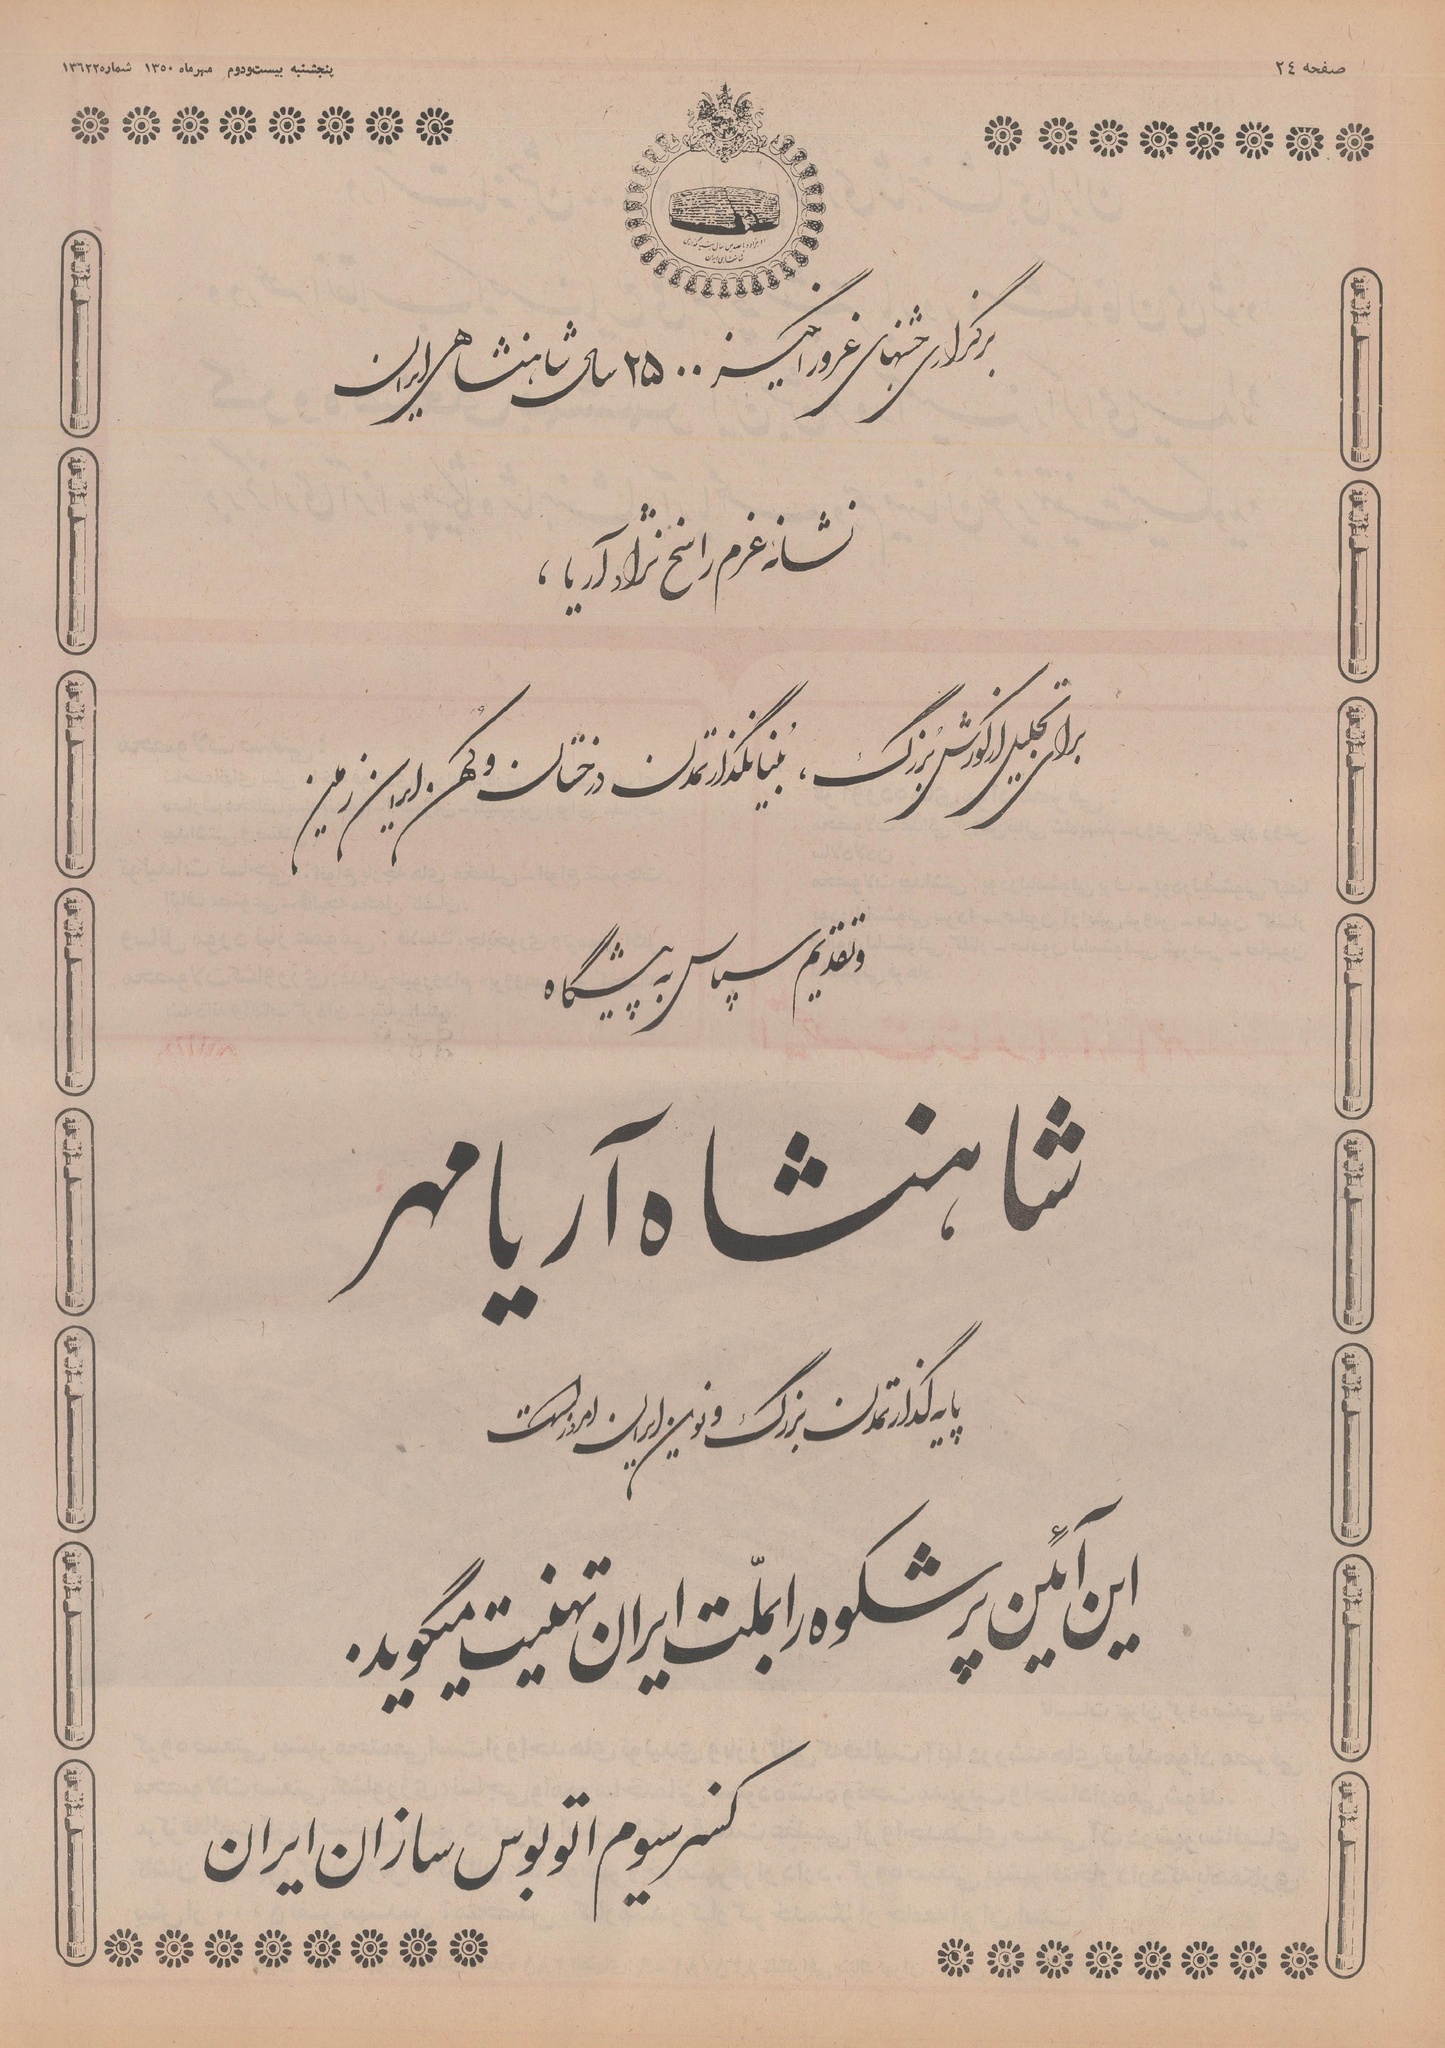 صفحه ٢٤
پنجشنبه بیست‌ودوم مهرماه ١٣٥٠ شماره ١٣٦٢٢
برگزاری جشنهای غرورانگیز ۲۵۰۰ سالهٔ شاهنشاهی ایران
نشانهٔ عزم راسخ نژاد آریا،
برای تجلیل از کورش بزرگ، بُنیانگذار تمدن درخشان و کُهن ایران زمین
و تقدیم سپاس به پیشگاه
شاهنشاه آریامهر
پایه گذار تمدن بزرگ و نوین ایران امروز است
این آئین پرشکوه را بملّت ایران تهنیت میگوید.
کنسرسیوم اتوبوس سازان ایران